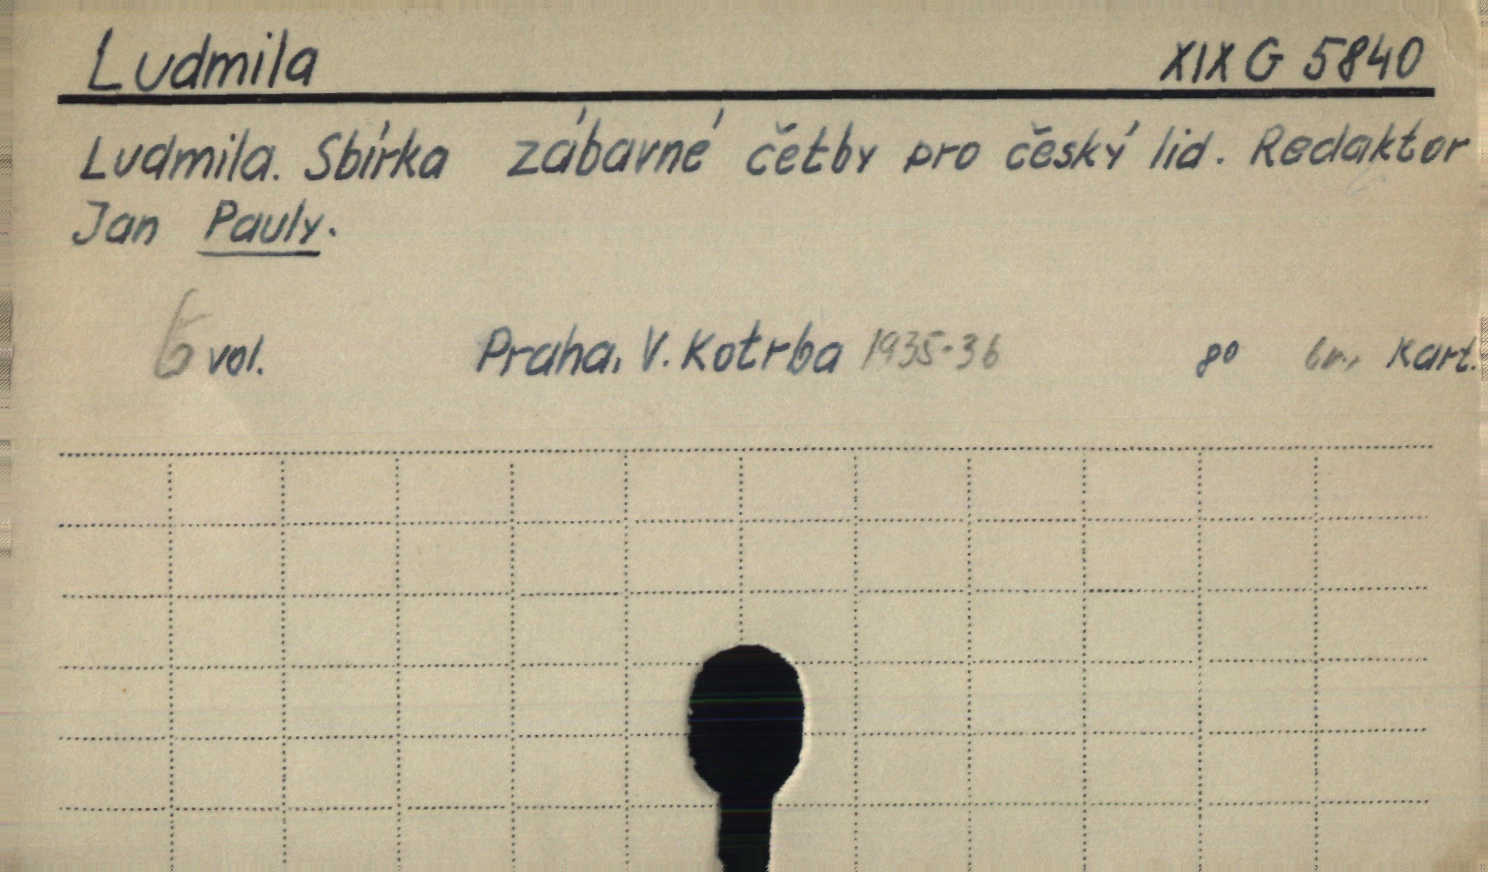 Ludmila XIX G 5840
Ludmila. Sbírka zábavné četby pro český lid. Redaktor
Jan Pauly.
6 vol. Praha, V. Kotrba 1935-36 8° br., Kart.